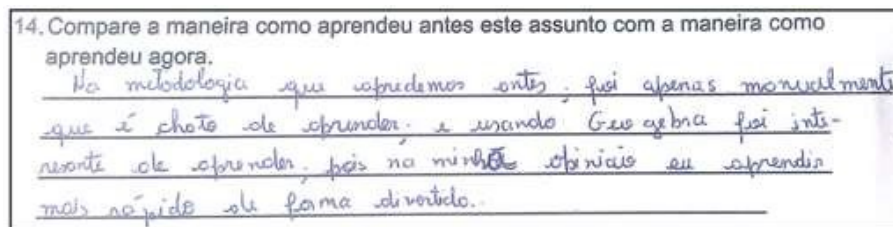 14. Compare a maneira como aprendeu antes este assunto com a maneira como
aprendeu agora.
Na metodologia que apredemos antes, foi apenas manualmente
que é chato de aprender. e usando Geogebra foi inte-
resante de aprender, pois na minha opiniaio eu aprendir
mais rápido de forma divertido.